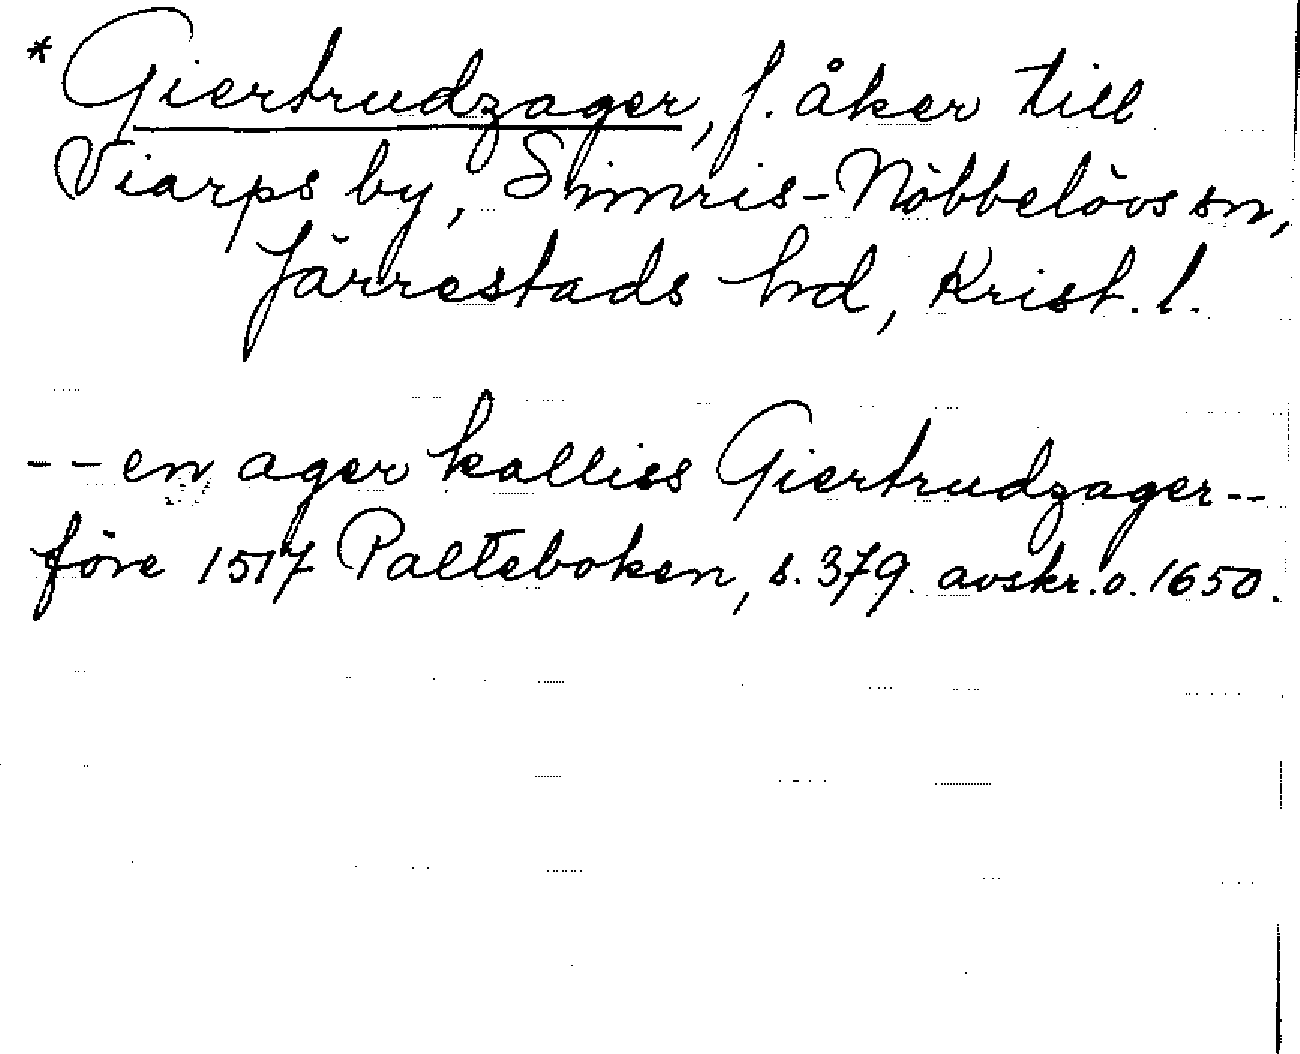 * Giertrudzager, f. åker till
Viarps by, Simris-Nöbbelövs sn,
Järrestads hd, Krist. l.
-- en ager kalliss Giertrudzager --
före 1517 Palteboken, s. 379. avskr. o. 1650.